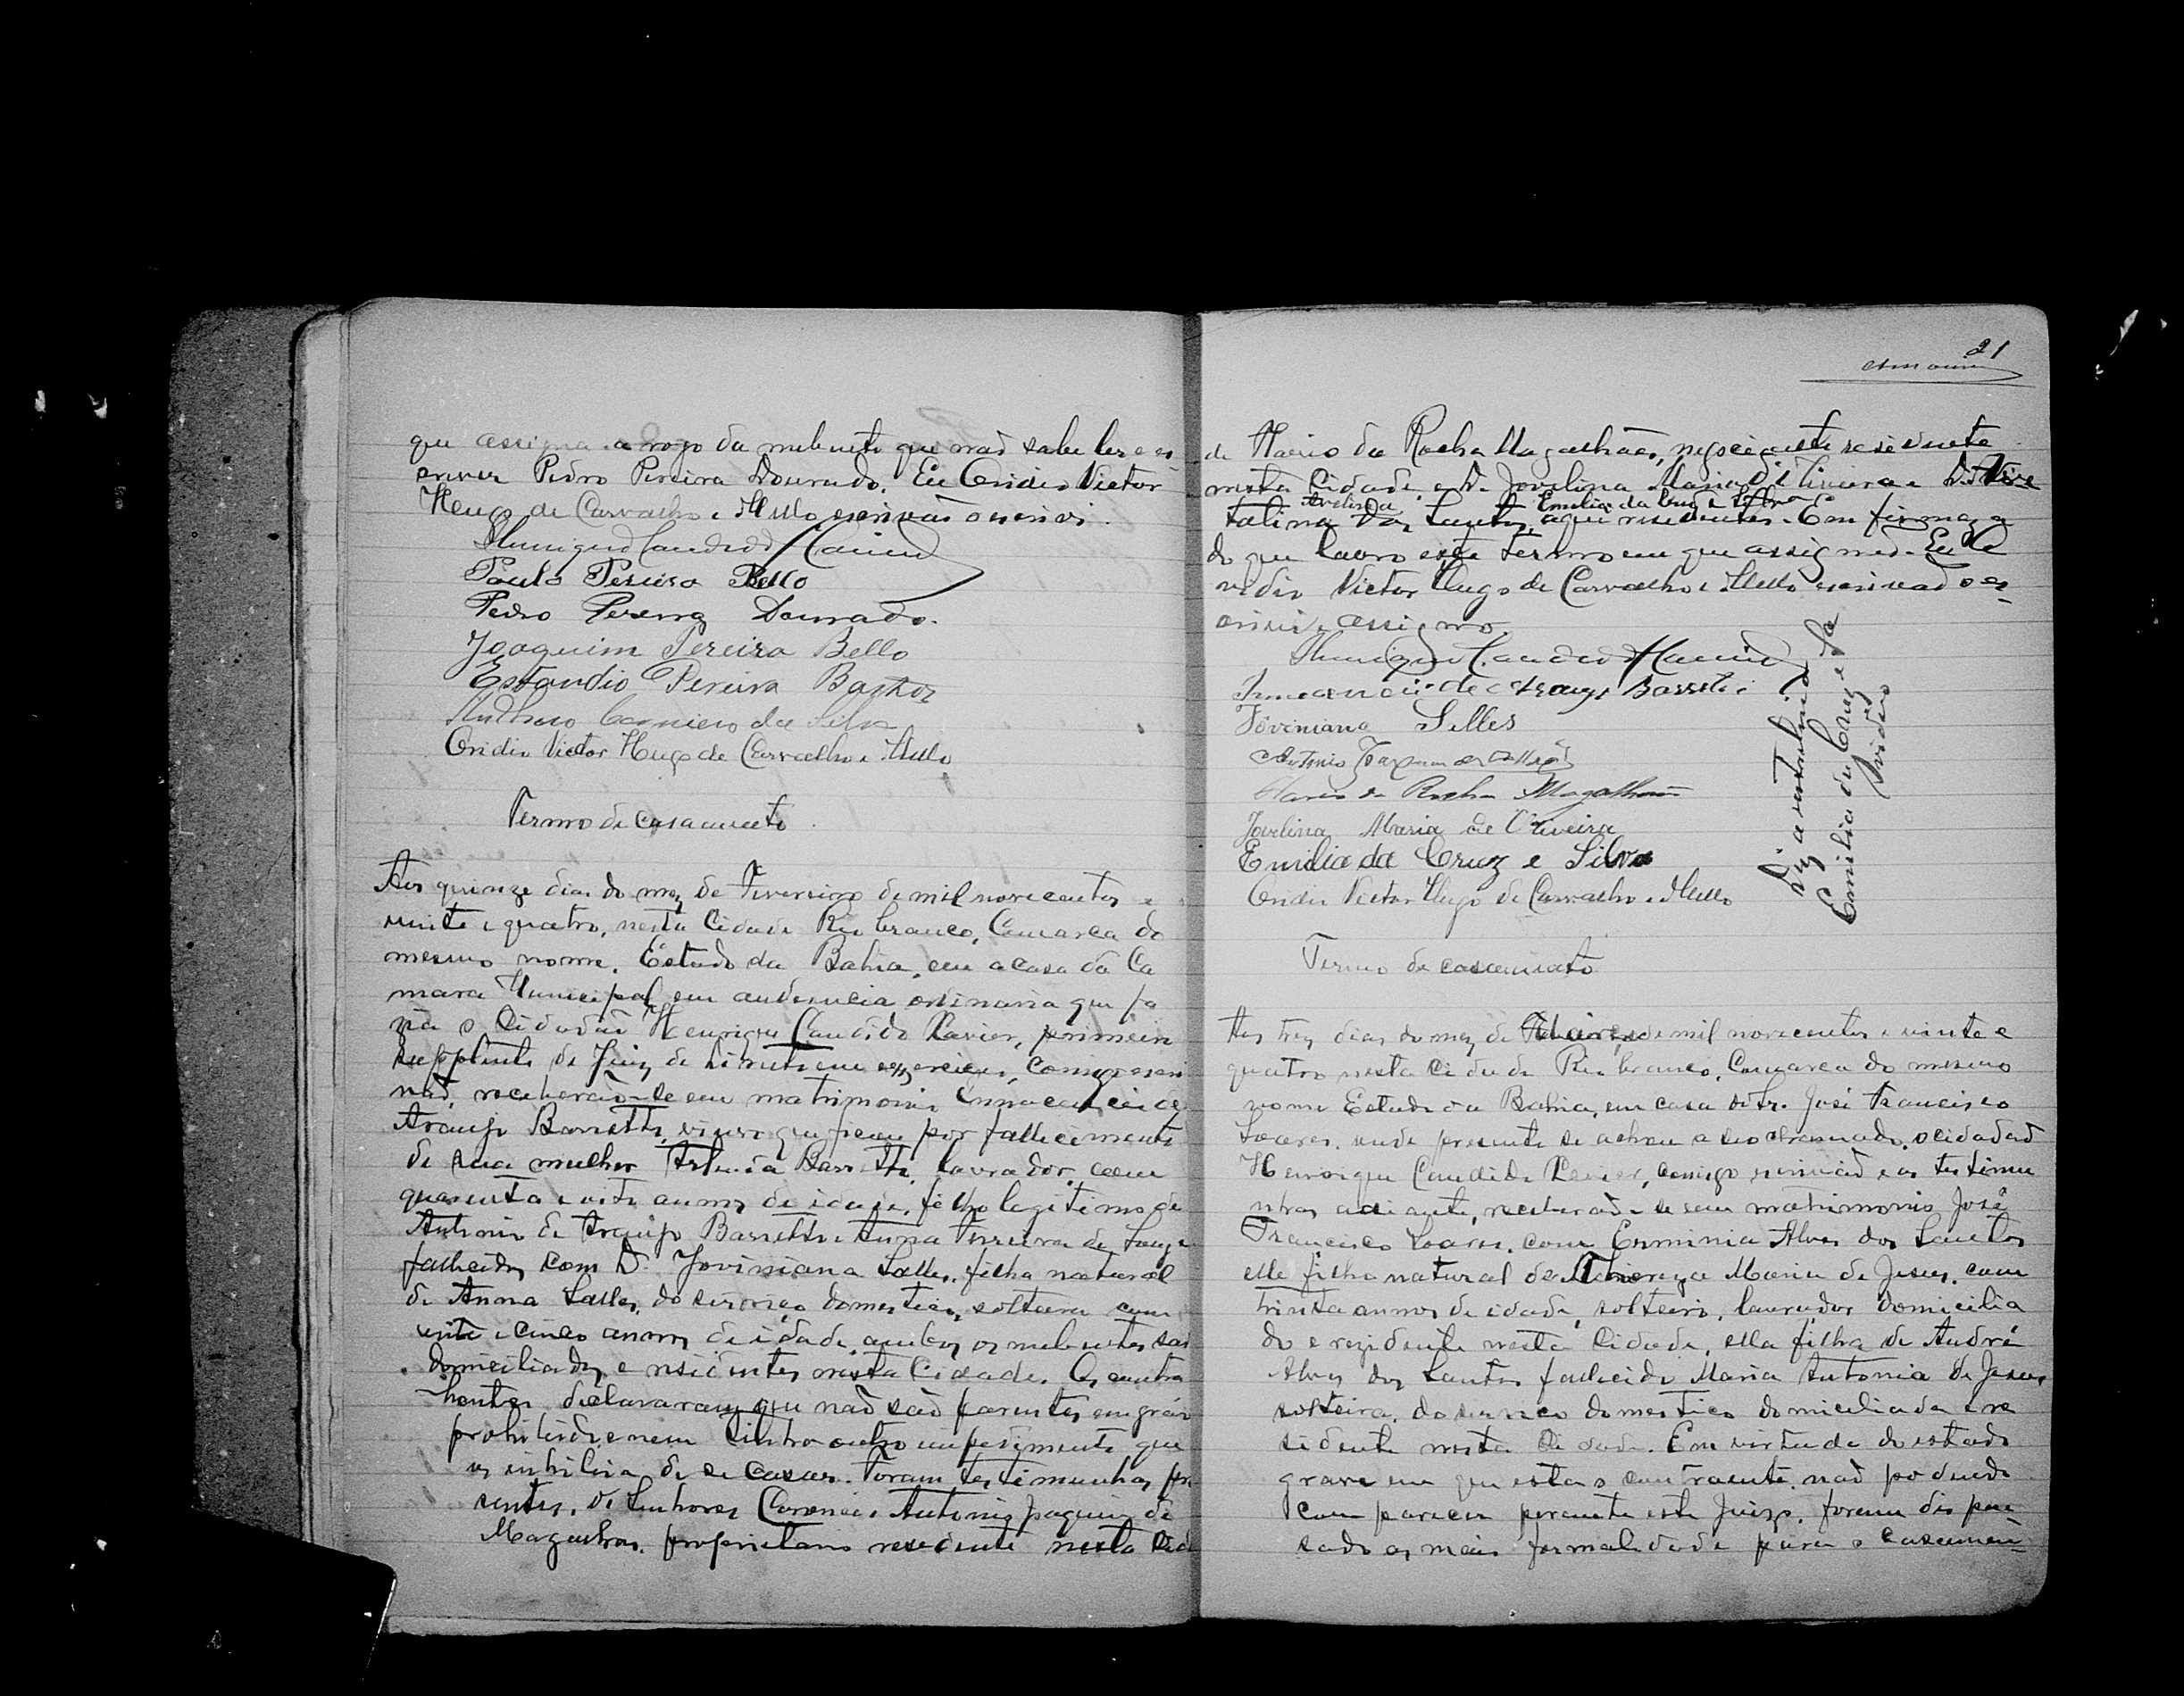 que assigna a rogo da nubente que não sabe ler e es
crever Pedro Pereira Dourado. Eu Ovidio Victor
Hugo de Carvalho e Mello escrivão o escrevi.
Henrique Candido Xavier
Paulo Pereira Bello
Pedro Pereira Dourado.
Joaquim Pereira Bello
Estandio Pereira Bastos
Carneiro da Silva
Ovidio Victor Hugo de Carvalho e Mello
Termo de casamento
Aos quinze dias do mez de Fevereiro de mil novecentos e
vinte e quatro, nesta Cidade Rio branco, Comarca do
mesmo nome, Estado da Bahia, em a casa da Ca
mara Municipal em audiencia ordinaria que fa
zia o Cidadão Henrique Candido Xavier, primeiro
supplente de Juiz de Direito em exercicio, comigo escri
vão, receberão-se em matrimonio Innocencio de
Araujo Barretto, viuvo que ficou por fallecimento
de sua mulher Barretto, lavrador, com
quarenta e oito annos de idade, filho legitimo de
Antonio de Araujo Barretto e Anna Ferreira de Souza
fallecidos com D. Joviniana Salles, filha natural
de Anna Salles, do serviço domestico, solteira com
vinte e cinco annos de idade, ambos os nubentes são
domiciliados e residentes nesta Cidade. Os contra
hentes declararam que não são parentes em gráo
prohibido e nem tinha outro impedimento que
os inhibia de se casar. Foram testemunhas pre
sentes, os Senhores Antonio Joaquim de
Magalhães, proprietario residente nesta Cida
21
de Mario da Rocha Magalhães, negociante residente
nesta Cidade, e D. Jovelina Maria d'Oliveira e D.
Emilia da Cruz e Silva
talina dos Santos, aqui residentes. Em firmeza
do que lavro este termo em que assignão. Eu O
vidio Victor Hugo de Carvalho e Mello escrivão o es-
crevi e assigno.
Henrique Candido Xavier
Innocencio de Araujo Barretto
Joviniana Salles
Antonio Joaquim de Magalhães
Mario da Rocha Magalhães
Jovelina Maria de Oliveira
Emilia da Cruz e Silva
Ovidio Victor Hugo de Carvalho e Mello
Diz a entrelinha
Emilia da Cruz e Sa
Ovidio
Termo de casamento
Aos tres dias do mez de de mil novecentos e vinte e
quatro nesta Cidade Rio branco, Comarca do mesmo
nome Estado da Bahia, em casa do Sr. José Francisco
Soares, onde presente se achou a seo chamado, o cidadão
Henrique Candido Xavier, comigo escrivão e as testimu
nhas adiante, receberão-se em matrimonio José
Francisco Soares, com Erminia Alves dos Santos
elle filho natural de Thereza Maria de Jesus, com
trinta annos de idade, solteiro, lavrador domicilia
do e rezidente nesta Cidade, ella filha de André
Alves dos Santos fallecido Maria Antonia de Jesus,
solteira, do serviço domestico domiciliada e re
sidente nesta Cidade. Em virtude do estado
grave em que esta o contraente, não podendo
comparecer perante este Juizo, foram dispen
sado as mais formalidade para o casamen-